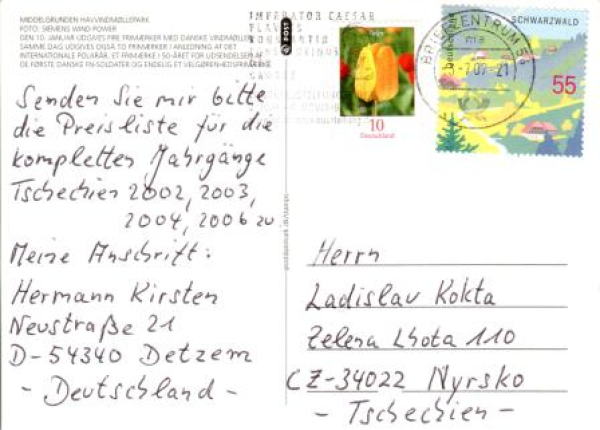 MIDDELGRUNDEN HAVVINDMØLLEPARK
FOTO: SIEMENS WIND POWER
DEN 10. JANUAR UDGIVES FIRE FRIMÆRKER MED DANSKE VINDMØLLER.
SAMME DAG UDGIVES OGSÅ TO FRIMÆRKER I ANLEDNING AF DET
INTERNATIONALE POLARÅR, ET FRIMÆRKE I 50-ÅRET FOR UDSENDELSEN AF
DE FØRSTE DANSKE FN-SOLDATER OG ENDELIG ET VELGØRENHEDSFRIMÆRKE.
POST
IMPERATOR CAESAR
FLAVIUS
CONSTANTINUS
Tulpe
10
Deutschland
BRIEFZENTRUM
SCHWARZWALD
Deutschland
55
Senden Sie mir bitte
die Preisliste für die
kompletten Jahrgänge
Tschechien 2002, 2003,
2004, 2006 zu
Meine Anschrift:
Hermann Kirsten
Neustraße 21
D-54340 Detzem
- Deutschland -
postdanmark.dk/stamps
Herrn
Ladislav Kokta
Zelena Lhota 110
CZ-34022 Nyrsko
- Tschechien -